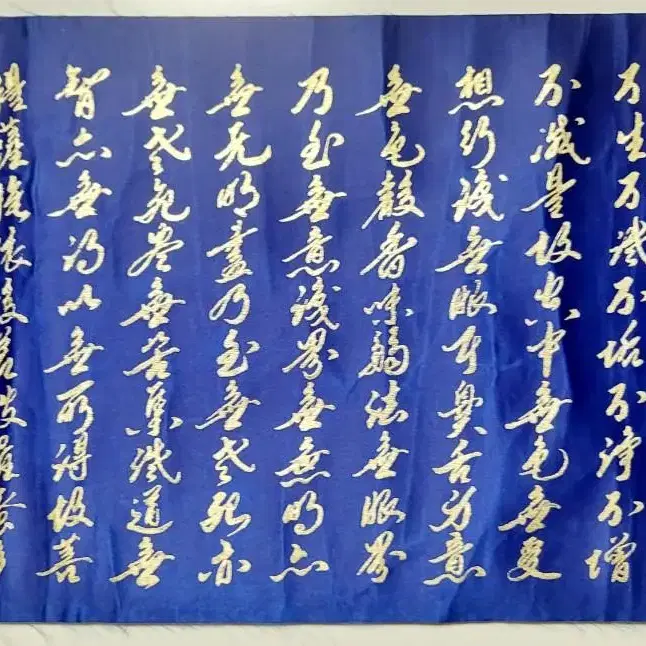 不生不滅不垢不淨不增
不減是故空中無色無受
想行識無眼耳鼻舌身意
無色聲香味觸法無眼界
乃至無意識界無無明亦
無无明盡乃至無老死亦
無老死盡無苦集滅道無
智亦無得以無所得故菩
提薩埵依般若波羅蜜多